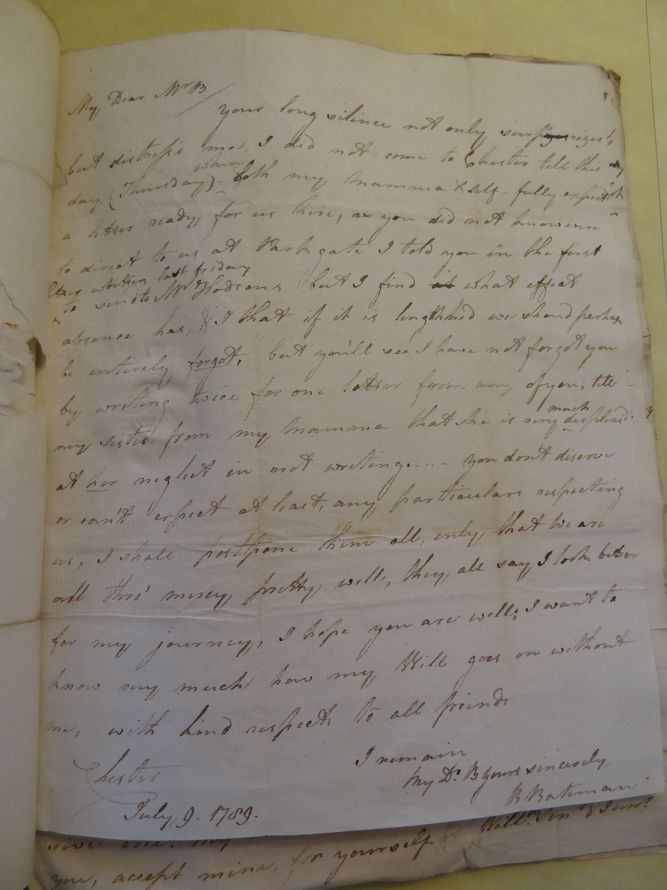 My Dear Mr B
your long silence not only surprizes
but distress's me, I did not come to Chester till this
day (Thursday) when both my Mamma & self fully expected
a letter ready for us here, as you did not know were
to direct to us at Parkgate I told you in the first
letter written last friday
to send to Mr Hodsons but I find what effect
absence has, & I that if it is lengthened we should perhaps
be entirely forgot, but you'll see I have not forgot you
by writing twice for one letter from any of you; tell
my sister from my Mamma that she is very much displeas'd
at her neglect in not writing. --- you don't deserve
or can't expect at least, any particulars respecting
us, I shall postpone them all, only, that we are
all thro' mercy, pretty well, they all say I look better
for my journey, I hope you are well, I want to
know very much how my Will goes on without
me, with kind respects to all friends
I remain
My Dr. B yours sincerely,
B Bateman
Chester
July, 9. 1789.
give one. my
you, accept mine, for yourself